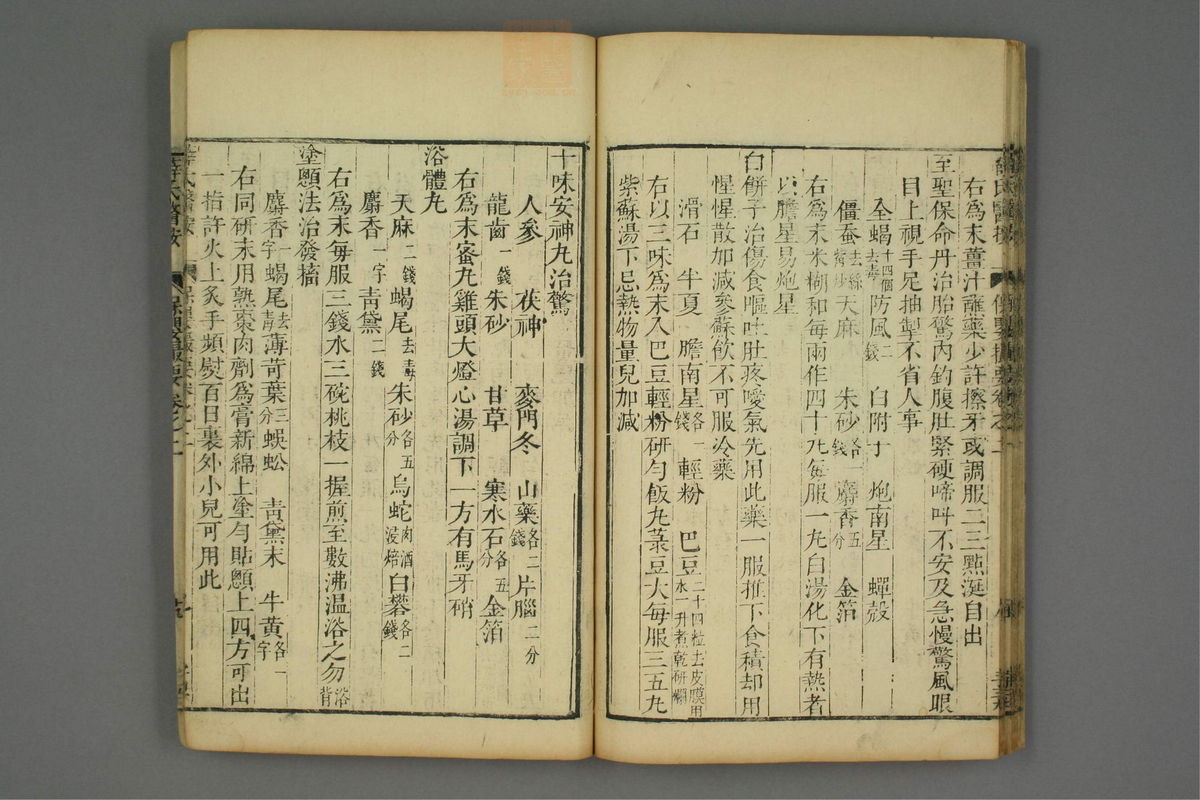 右爲末薑汁蘸藥少許擦牙或調服二三點涎自出
至聖保命丹治胎驚內釣腹肚緊硬啼呌不安及急慢驚風眼
目上視手足抽掣不省人事
全蝎十四個去毒 防風二錢 白附子 炮南星 蟬殼
僵蚕去絲觜炒 天麻 朱砂各一錢 麝香五分 金箔
右爲末米糊和每兩作四十九每服一丸白湯化下有熱者
以膽星易炮星
白餠子治傷食嘔吐肚疼噯氣先用此藥一服推下食積却用
惺惺散加減參蘇飮不可服冷藥
滑石 半夏 膽南星各一錢 輕粉 巴豆二十四粒去皮膜用水一升煮乾研爛
右以三味爲末入巴豆輕粉研勻飯丸菉豆大每服三五丸
紫蘇湯下忌熱物量兒加減
十味安神丸治驚
人參 茯神 麥門冬 山藥各二錢 片腦二分
龍齒一錢 朱砂 甘草 寒水石各五分 金箔
右爲末蜜丸雞頭大燈心湯調下一方有馬牙硝
浴體丸
天麻二錢 蝎尾去毒 朱砂各五分 烏蛇肉酒浸焙 白礬各二錢
麝香一字 靑黛二錢
右爲末每服三錢水三碗桃枝一握煎至數沸温浴之勿浴背
塗顖法治發搐
麝香一字 蝎尾去毒 薄荷葉三分 蜈蚣 靑黛末 牛黃各一字
右同研末用熟棗肉劑爲膏新綿上塗勻貼顖上四方可出
一指許火上炙手頻熨百日裏外小兒可用此
薛氏醫按 保嬰撮要卷之二